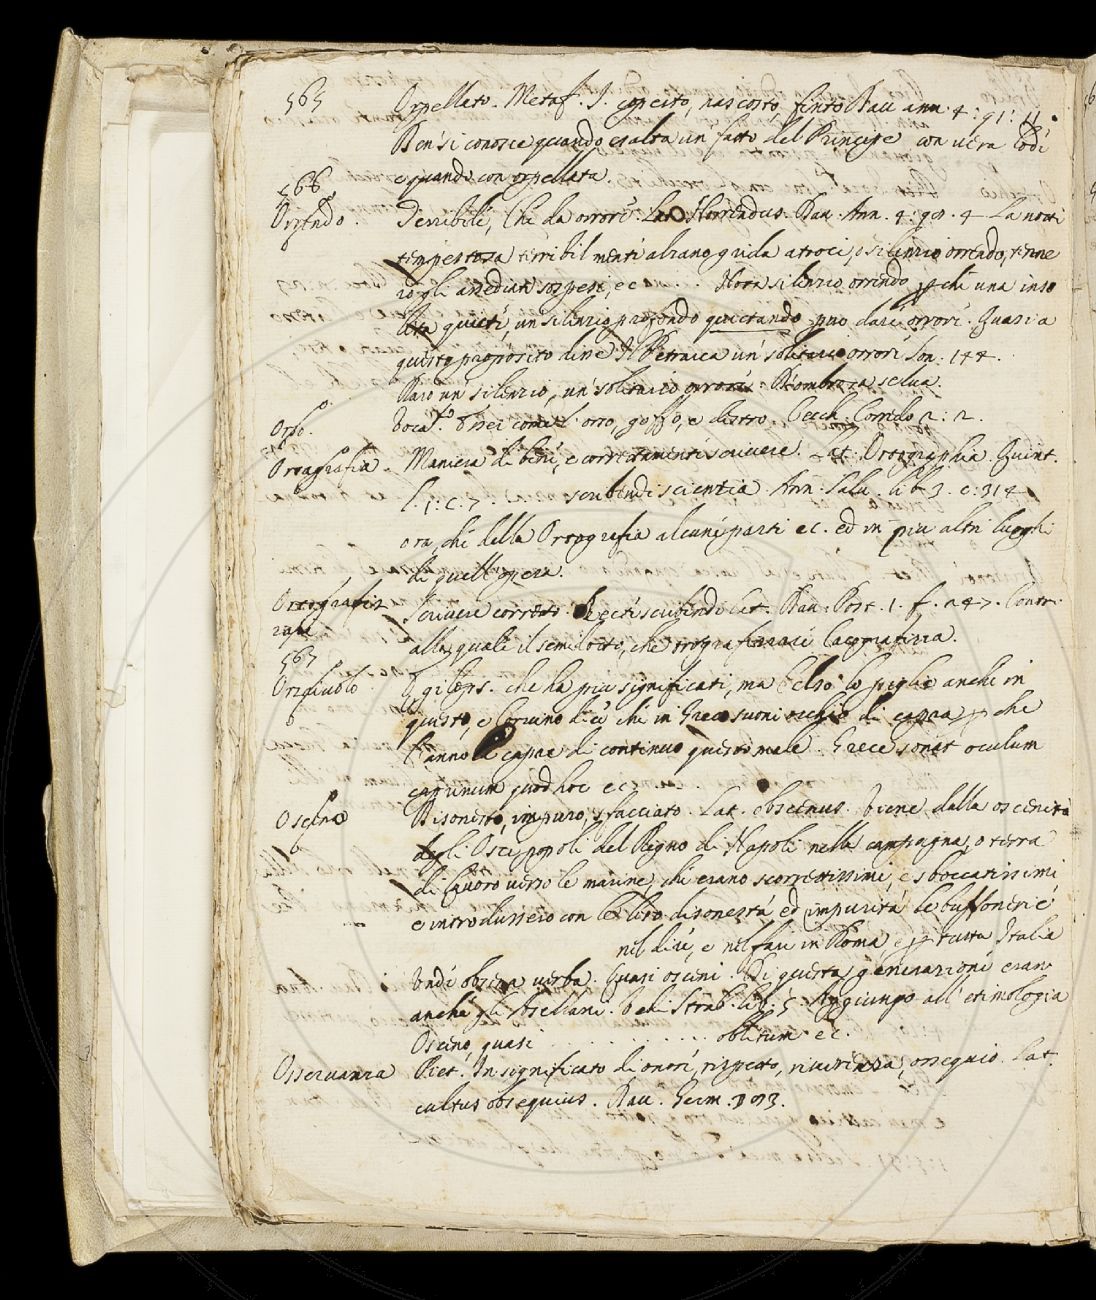 565 Orpellato. Metaf. I. coperto, nascosto, finto Dav. ann. 4: 91: 11.
Ben si conosce quando esalta un fatto del Principe con vera lodi
e quando con orpellata.
566
Orrendo Terribile, che da orrore. Lat. Horrendus. Dav. Ann. 4: 90. 4 La notte
tempestosa terribil mente alzano grida atroci, silenzio orrendo, tenne
ro gli assediati sospesi, ec .... Nota silenzio orrendo che una inso
lita quiete, un silenzio profondo quietando può dare orrore. Quasi a
questo proposito dire il Petrarca un solitario orrore Son. 144.
Raro un silenzio, un solitario orrore D'ombrosa selva.
Orso. Vocat.o come l'orso, goffo, e destro. Cecch. Corredo 2: 2.
Ortografia. Maniera di bene, e correttamente scrivere. Lat. Ortographia. Quint.
l. 1: c. 7. scribendi scientia. Ann. Salv. lib 3. c: 314
ora, che della Ortografia alcune parti ec. ed in più altri luoghi
di quell'opera.
Ortografiz
zare Scrivere corretto. Recte scribendi Lat. Dav. Post. 1. f. 247. Contr.
alla quale il semidotto, che ortografizzare cacografizza.
567
Orzaiuolo che ha più significati, ma Celso lo piglia anche in
questo, e dice che in Greco suoni occhio di capra che
hanno le capre di continuo questo male. Grece sonat oculum
caprinum quod hoc ec.
Osceno Disonesto, impuro, sfacciato. Lat. obscenus. Viene dalla oscenità
degli Osci, popoli del Regno di Napoli nella campagna, o terra
di lavoro verso le marine, che erano scorrettissimi, e sboccatissimi
e introdussero con la loro disonestà ed impurità le buffonerie
nel dire, e nel fare in Roma e per tutta Italia
Onde obscena verba. Quasi osceni. Di questa generazione eran
anche gli Atellani. Vedi Strab. lib. 5. Aggiungo all'etimologia
Osceno, quasi . . . . . . . . . . . oblitum ec.
Osservanza Riet. In significato di onore, rispetto, riverenza, ossequio. Lat.
cultus obsequius. Dav. Germ.